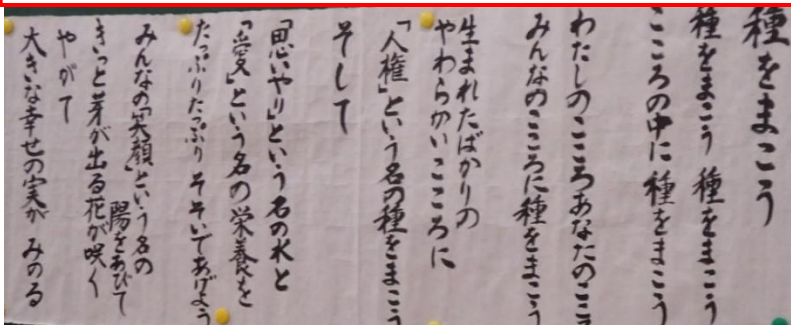 種をまこう
種をまこう 種をまこう
こころの中に 種をまこう
わたしのこころあなたのここ
みんなのこころに種をまこう
生まれたばかりの
やわらかいこころに
「人権」という名の種をまこう
そして
「思いやり」という名の水と
「愛」という名の栄養を
たっぷりたっぷり そそいであげよう
みんなの「笑顔」という名の
陽をあびて
きっと芽が出る花が咲く
やがて
大きな幸せの実が みのる